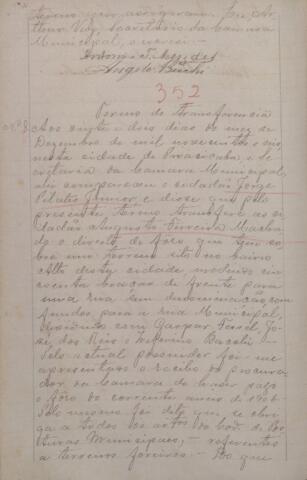 termo que assignaram. Eu, Ar-
thur Vaz, Secretario da Camara
Municipal, o escrevi.
Antonio T. Mendes
Angelo Bacchi
352
Termo de Transferencia
Aos vinte e dois dias do mez de
Dezembro de mil novecentos e seis,
nesta cidade de Piracicaba, e Se-
cretaria da Camara Municipal,
ahi compareceu o cidadão Jorge
Junior, e disse que pelo
presente termo transfere ao ci-
dadão Augusto Ferreira Macha-
do o direito de fôro que tem so-
bre um terreno sito no bairro
Alto desta cidade, medindo cin-
coenta braças de frente para
uma rua sem denominação, com
fundos para a rua Municipal,
dividindo com Gaspar Fessel, Jo-
sé dos Rios e Bacchi.
Pelo actual possuidor foi-me
apresentado o recibo do procura-
dor da Camara de haver pago
o fôro do corrente anno de 1906.
Pelo mesmo foi dito que se obri-
ga a todos os artos do Cod. de Pos-
turas Municipaes, referentes
a terrenos foreiros. Do que